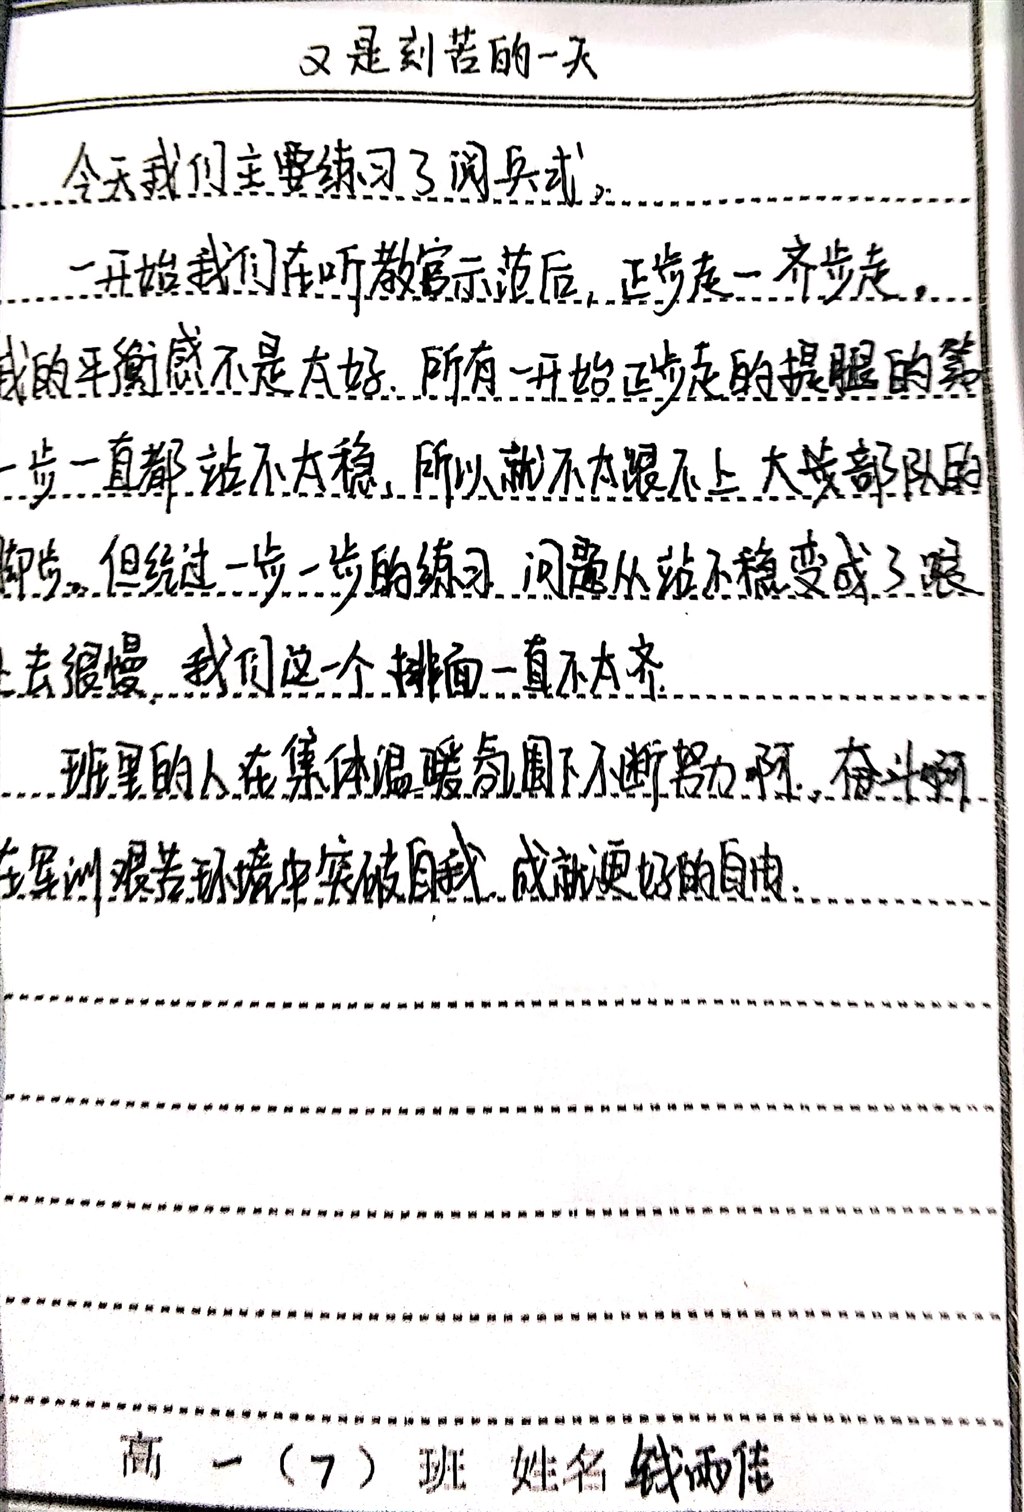 又是刻苦的一天
今天我们主要练习了阅兵式。
一开始我们在听教官示范后，正步走一齐步走。
我的平衡感不是太好.所有一开始正步走的提腿的第
一步一直都站不太稳,所以就不太跟不上大步部队的
脚步。但经过一步一步的练习 问题从站不稳变成了跟
上去很慢.我们这一个排面一直不太齐.
班里的人在集体温暖氛围下不断努力啊.奋斗啊
在军训艰苦环境中突破自我.成就更好的自由.
高一（7）班 姓名 钱雨佳